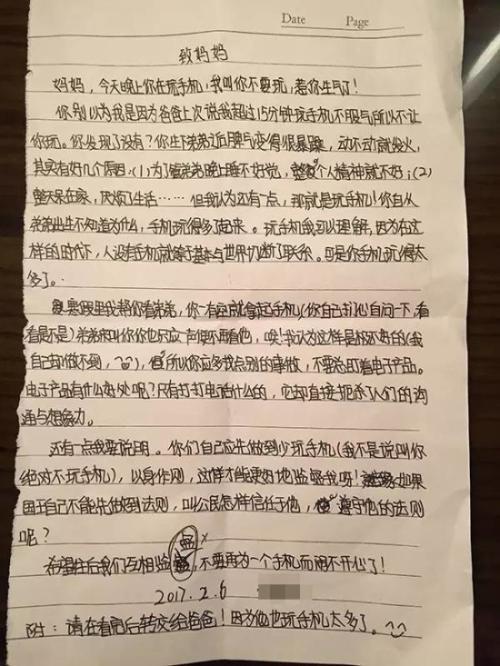 Date Page
致妈妈
妈妈，今天晚上你在玩手机，我叫你不要玩，惹你生气了！
你别以为我是因为爸爸上次说我超过15分钟玩手机不服气所以不让
你玩。你发现了没有？你生下弟弟后脾气变得很暴躁，动不动就发火，
其实有好几个原因：(1)为了管弟弟晚上睡不好觉，整个人精神就不好；(2)
整天呆在家，厌烦了生活……但我认为还有一点，那就是玩手机！你自从
弟弟出生不知道为什么，手机玩得多了起来。玩手机我可以理解，因为在这
样的时代下，人没有手机就等于基本与世界切断了联系。可是你手机玩得太
多了。
要是假日里我帮你看弟弟，你一有空就拿起手机(你自己扪心自问一下，看
看是不是)弟弟来叫你你也只应一声便不再看他，唉！我认为这样是极不好的(我
自己却做不到，)，所以你应多找点别的事做，不要总盯着电子产品。
电子产品有什么好处呢？只有打打电话什么的，它却直接扼杀了人们的沟
通与想象力。
还有一点我要说明。你们自己应先做到少玩手机(我不是说叫你
绝对不玩手机)，以身作则，这样才能更好地监督我呀！如果
国王自己不能先做到法则，叫公民怎样信任于他，遵守他的法则
呢？
希望往后我们互相监督，不要再为一个手机而闹不开心了！
2017.2.6
附：请在看完后转交给爸爸！因为他也玩手机太多了。